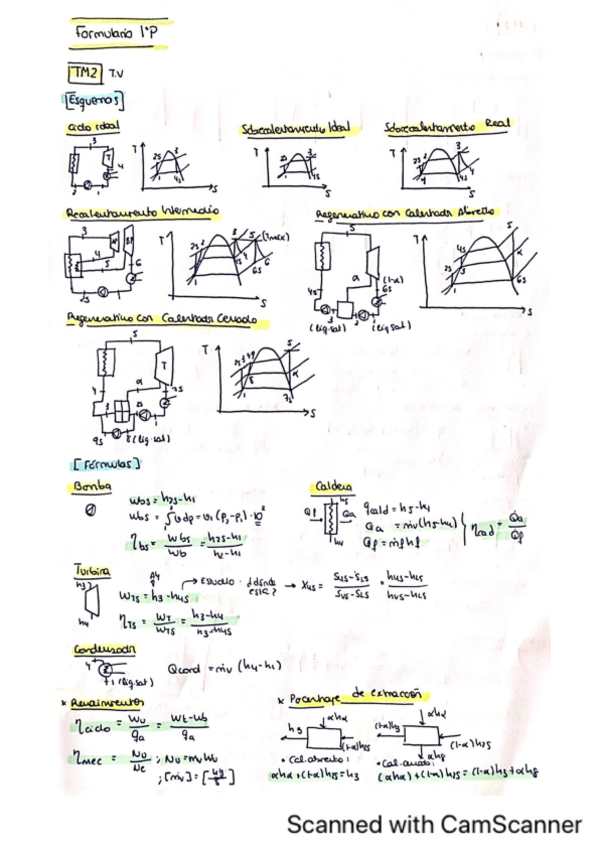 Formulario 1ºP
TM2 T.V
[Esquemas]
Ciclo ideal
Sobrecalentamiento Ideal
Sobrecalentamiento Real
Recalentamiento Intermedio
Regenerativo con Calentador Abierto
Regenerativo con Calentador Cerrado
[Fórmulas]
Bomba
Wbs = h2s-h1
Wbs = ∫vdp = v1(p2-p1)·10²
ηbs = Wbs/Wb = h2s-h1/h2-h1
Caldera
qcald = h5-h4
Qa = ṁv(h5-h4)
Qf = ṁf hf
ηcad = Qa/Qf
Turbina
WTs = h3-h4s
→ Estudio ¿dónde está?
→ X4s = S4s-SLs/Svs-SLs = h4s-hLs/hvs-hLs
ηTs = WT/WTs = h3-h4/h3-h4s
Condensador
Qcond = ṁv (h4-h1)
1 (liq.sat)
* Rendimientos
ηciclo = Wu/qa = Wt-Wb/qa
ηmec = Nu/Ne ; Nu = mv Wu
; [ṁv] = [kg/s]
* Porcentaje de extracción
• Cal. abierto:
αhα+(1-α)h2s=h3
• Cal. cerrado:
(αhα)+(1-α)h2s = (1-α)h3+αh8
Scanned with CamScanner